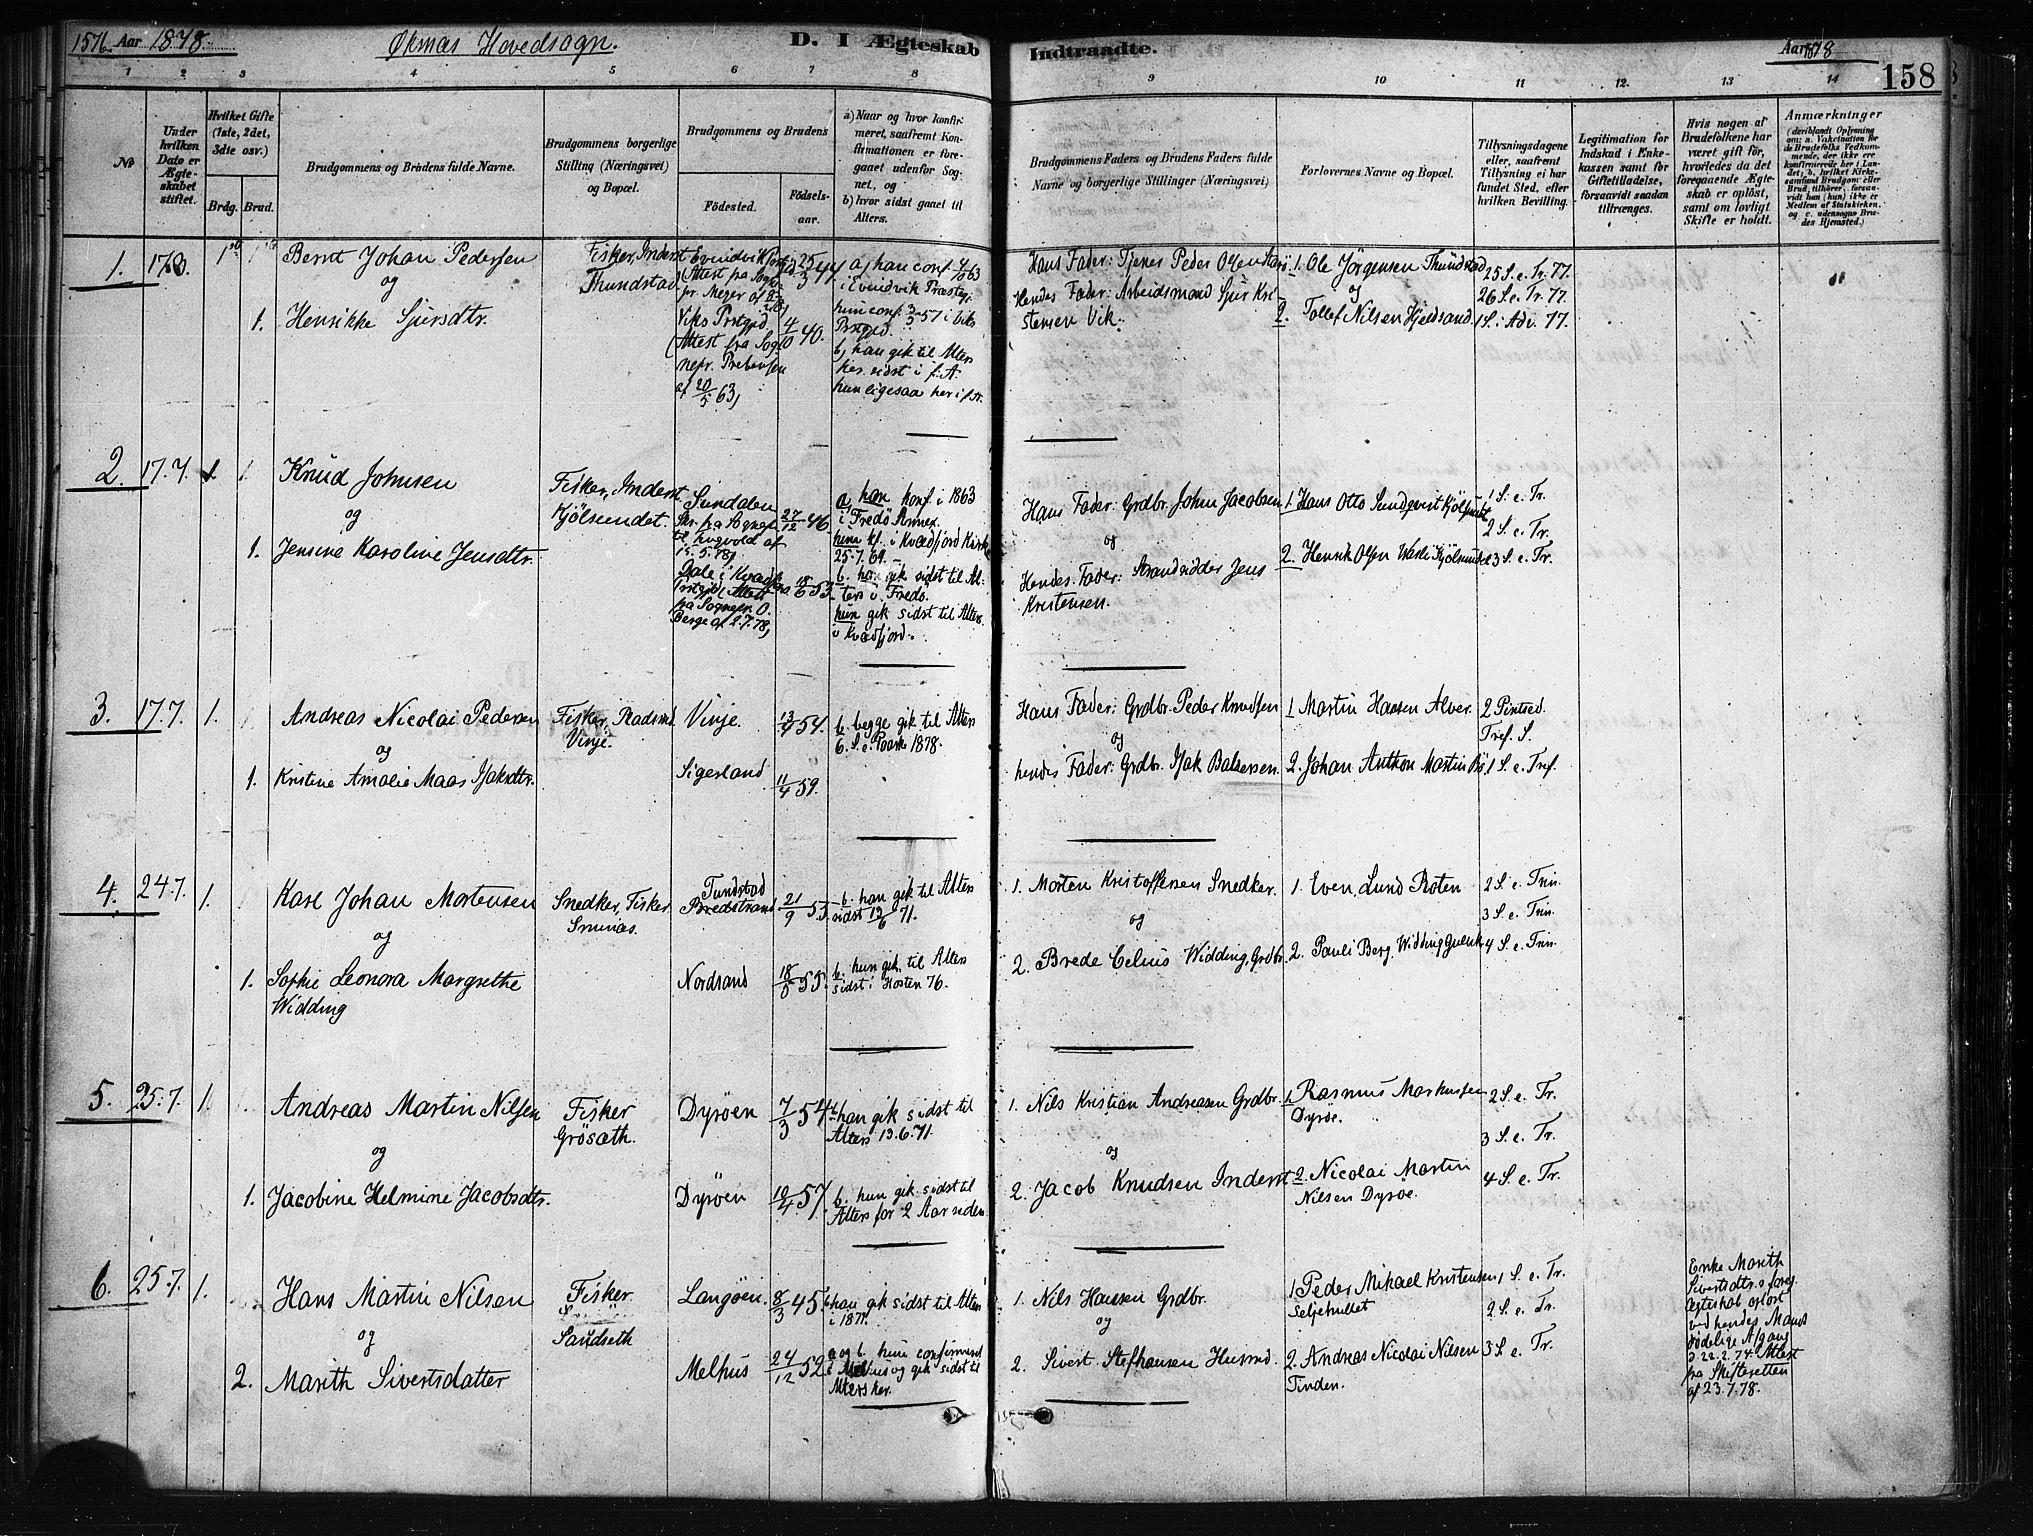 1576. Aar 1878. Øksnas Hovedsogn. D. I Ægteskab
Indtraadte. Aar 1878
158
1 2 3 4 5 6 7 8
9 10 11 12. 13 14
No
Under hvilken Dato er Ægteskabet stiftet.
Hvilket Gifte (1ste, 2det, 3die osv.)
Brdg. Brud.
Brudgommens og Brudens fulde Navne.
Brudgommens borgerlige Stilling (Næringsvei) og Bopæl.
Brudgommens og Brudens
Födested. Födselsaar.
a) Naar og hvor konfirmeret, saafremt Konfirmationen er foregaaet udenfor Sognet, og
b) hvor sidst gaaet til Alters.
Brudgommens Faders og Brudens Faders fulde Navne og borgerlige Stillinger (Næringsvei)
Forlovernes Navne og Bopæl.
Tillysningsdagene eller, saafremt Tillysning ei har fundet Sted, efter hvilken Bevilling.
Legitimation for Indskud i Enkekassen samt for Giftetilladelse, forsaavidt saadan tiltrænges.
Hvis nogen af Brudefolkene har været gift för, hvorledes da det foregaaende Ægteskab er oplöst, samt om lovligt Skifte er holdt.
Anmærkninger
(deriblandt Oplysning om: a. Vakcination for de Brudefolks Vedkommende, der ikke ere konfirmerede her i Landet; b. hvilket Kirkesamfund Brudgom eller Brud tilhörer, forsaavidt han (hun) ikke er Medlem af Statskirken, og c. udensogns Brudes Hjemsted.)
1.
Bernt Johan Pedersen
og
1. Henrikke Sjursdtr.
Fisker, Inderst
Thundstad
Evindvik
Attest fra Sog
Viks Prstgjd
Attest fra Sog
nepr. Prebensen
af 20/5 63)
25/3 44
4/10 40.
a) han conf. 4/10 63
i Evindvik Præstgj.
hun conf. 3/3 57 i Viks
Prstgjd.
b) han gik til Alter
her sidst i f. A.
hun ligesaa her i f. A.
Hans Fader: Tjener Peder Olsen
Hendes Fader: Arbeidsmand Sjur Kri
stensen Vik.
1. Ole Jörgensen Thundstad
og
2. Tollef Nilsen Hjeldsand.
25 S. e. Tr. 77.
26 S. e. Tr. 77.
1 S. i Adv. 77.
2. 17.7 1.
Knud Johnsen
og
1. Jensine Karoline Jensdtr.
Fisker, Inderst
Kjölsundet.
Sundalen
27/12 46
18/6 53.
Berge af 2.7.78)
a. han konf. i 1863
i Fredö Annex.
hun kf. i Kvædfjord Kirke
25.7.69.
b. han gik sidst til Al-
ters i Fredö.
hun gik sidst til Alters
i Kvædfjord.
Hans Fader: Grdbr. John Jacobsen
og
Hendes Fader: Strandsidder Jens
Kristensen.
1 Hans Otto Sundqvist Kjölsundet
2. Henrik Olsen Kjölsundet
1 S. e. Tr.
2 S. e. Tr.
3 S. e. Tr.
3. 17.7. 1.
Andreas Nicolai Pedersen
og
1. Kristine Amalie Maas Isaksdtr.
Fisker, Pladsmd
Vinje.
Vinje.
Sigerland
13/9 54.
11/4 59.
b. begge gik til Alters
6. S. e. Paaske 1878.
Hans Fader: Grdbr. Peder Knudsen
og
hendes Fader: Grdbr. Isak Baltzersen.
1 Martin Hansen Alver.
2. Johan Anthon Martin
2 Pintsed.
Tref. S.
1 S. e. Tref.
4. 24.7. 1.
Karl Johan Mortensen
og
1. Sophie Leonora Margrethe
Widding
Snedker, Fisker
Smines.
Tundstad
Bredstrand
Nordsand
21/9 53.
b. han gik til Alters
sidst 13/6 71.
b. hun gik til Alters
sidst i Hösten 76.
1. Morten Kristoffersen Snedker.
og
2. Brede Celius Widding, Grdbr.
1. Even Lund Roten
2. Pauli Berg Widding
2 S. e. Trin.
3 S. e. Trin.
4 S. e. Trin.
5. 25.7. 1.
Andreas Martin Nilsen
og
1. Jacobine Helmine Jacobsdtr.
Fisker
Grösæth.
Dyröen
Dyröen
7/3 54
10/4 57.
b. han gik sidst til
Alters 13.6.71.
b. hun gik sidst til
Alters for 2 Aar siden
1. Nils Kristian Andreasen Grdbr.
og
2. Jacob Knudsen Inderst
1. Rasmus Markussen
Dyröe.
2. Nicolai Martin
Nilsen Dyröe.
2 S. e. Tr.
3 S. e. Tr.
4 S. e. Tr.
6. 25.7 1.
Hans Martin Nilsen
og
2. Marith Sivertsdatter
Fisker
Sandseth
Langöen.
Melhus
8/3 45
24/12 52
b. han gik sidst til Alters
i 1877.
a og b. hun confirmert
i Melhus og gik sidst til
Alters her.
1. Nils Hansen Grdbr.
og
2. Sivert Stefhansen Husmd.
1 Peder Mikael Kristensen
Seljehullet
2. Andreas Nicolai Nilsen
Tinden.
1 S. e. Tr.
2 S. e. Tr.
3 S. e. Tr.
Enke Marith
Sivertsdtr.s foreg.
Ægteskab oplöst
ved hendes Mands
dödelige Afgang
d. 22.2.74. Attest
fra Skifteretten
af 23.7.78.